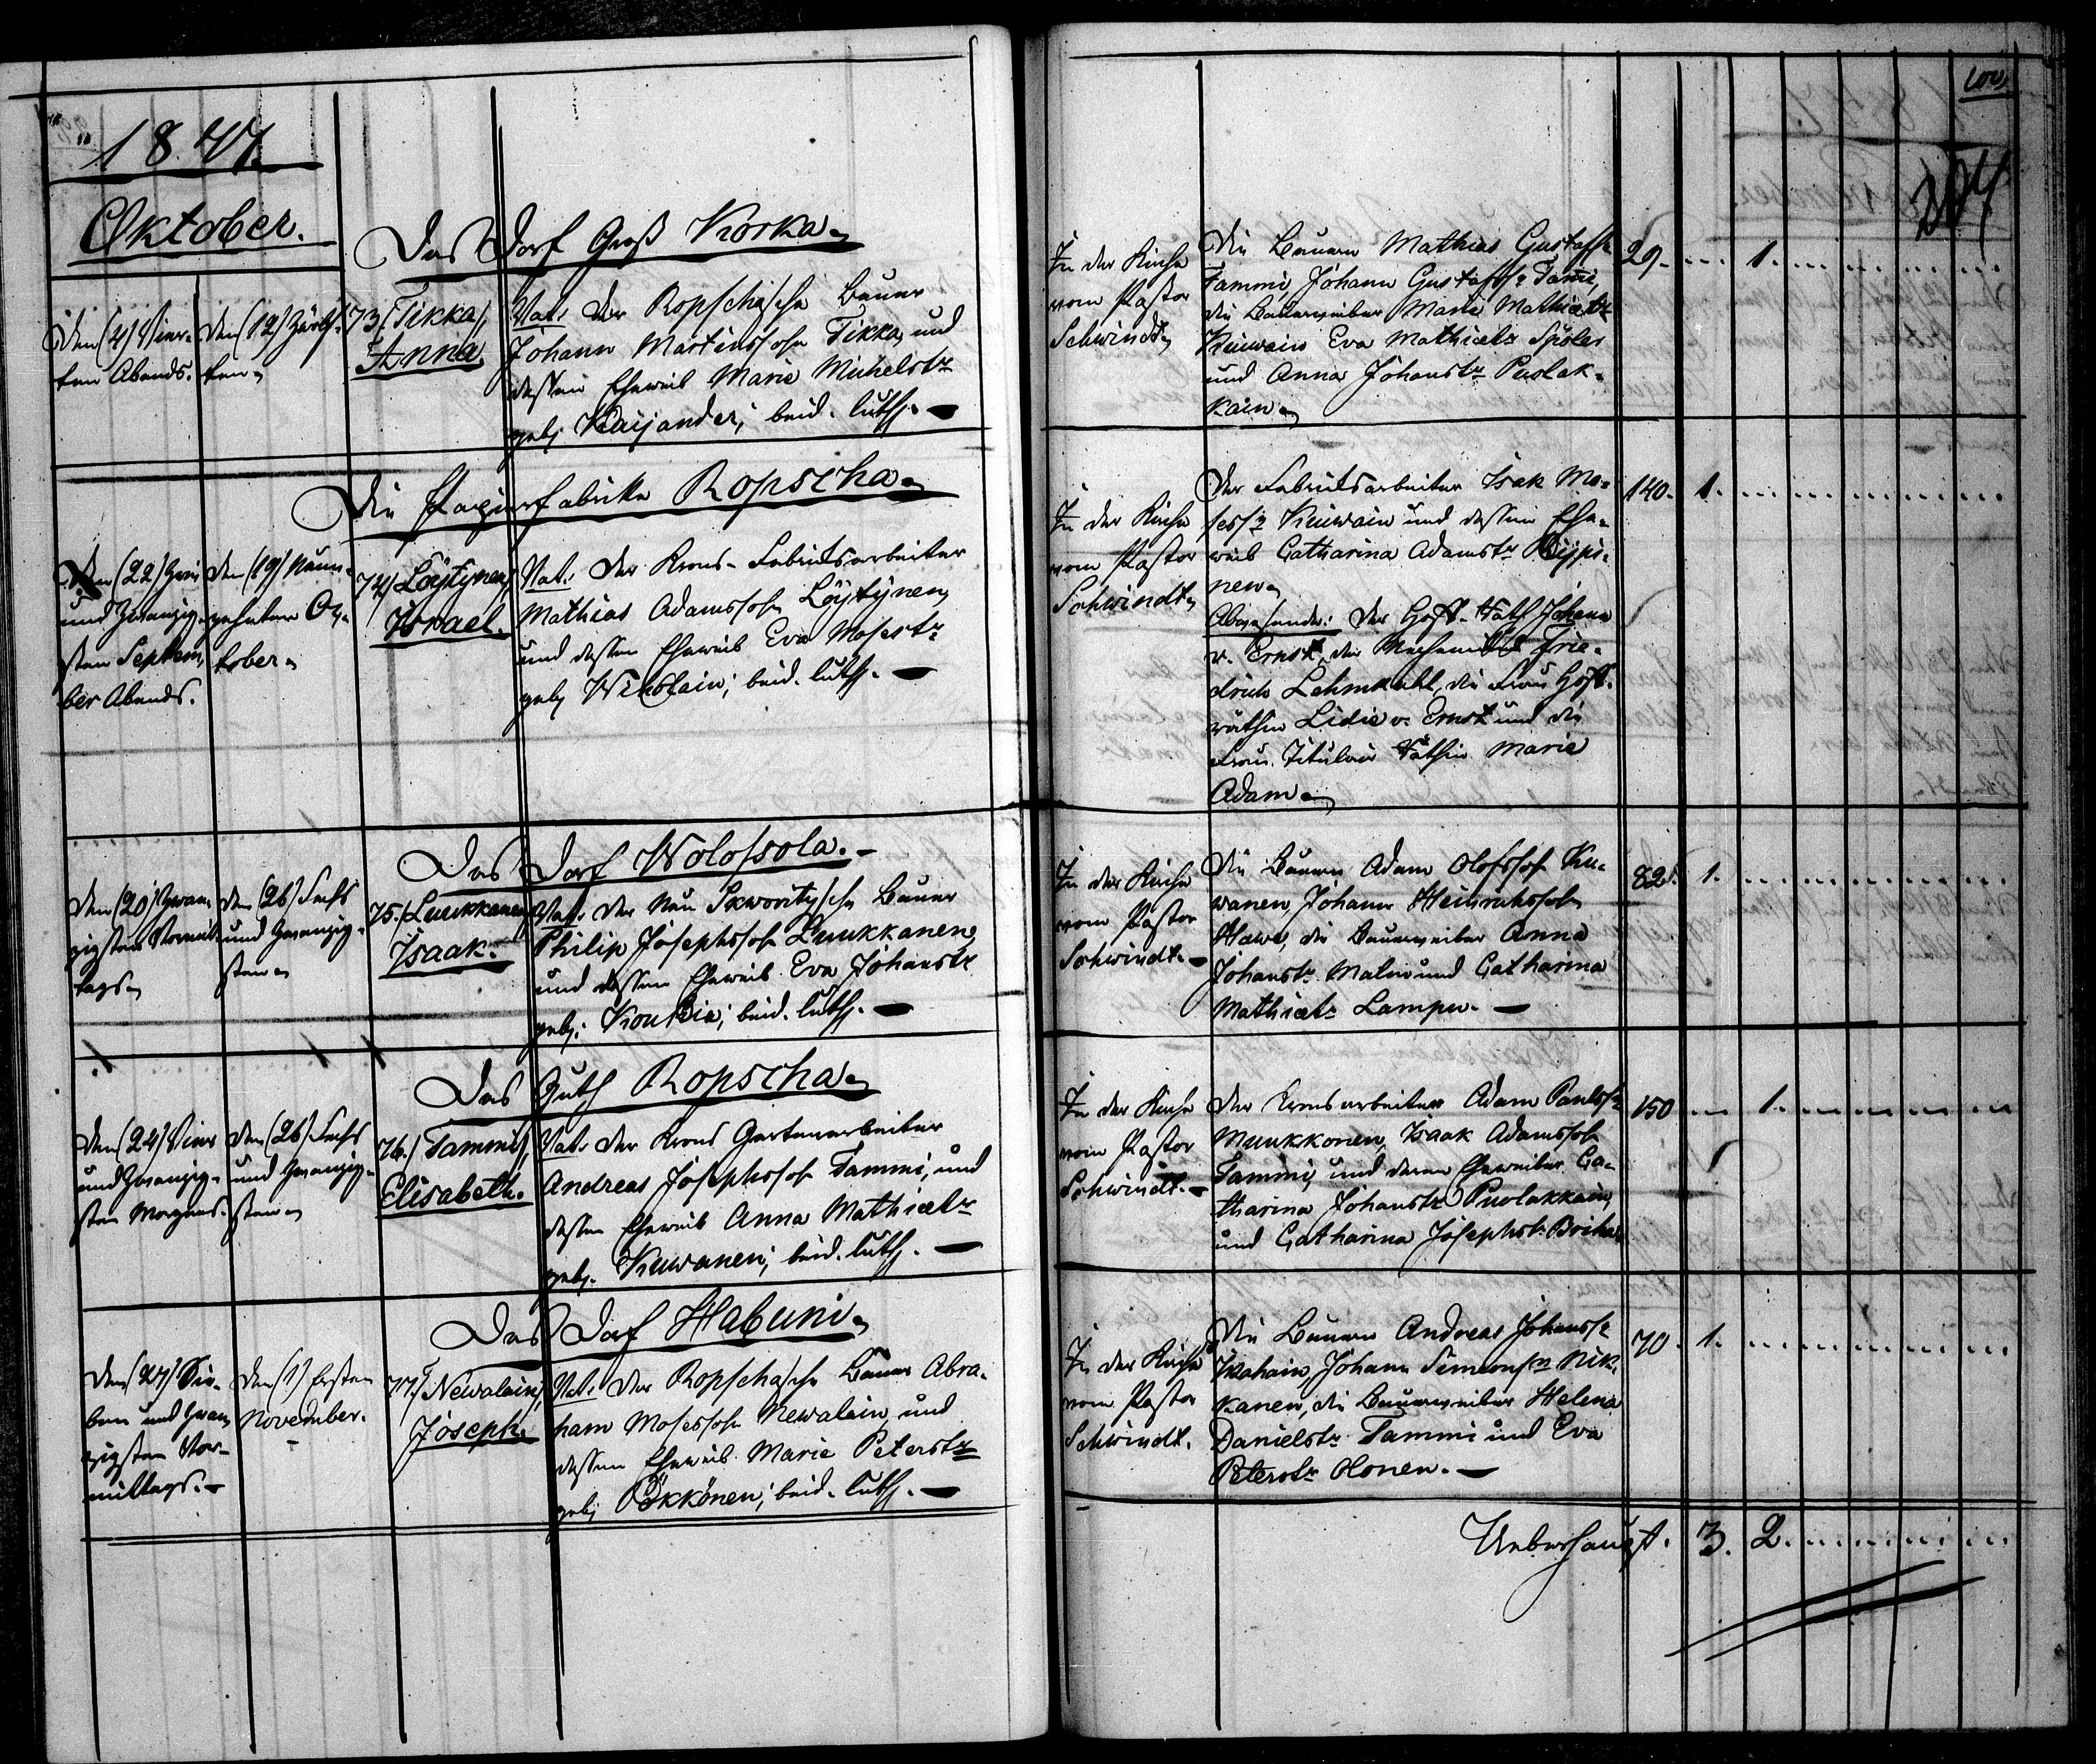 1847.
Oktober.
Das Dorf Groß Korka.
Den (4) Vier-
ten Abends.
Den (12) Zwölf-
ten.
73./ Tikka,
Anna.
Vat. Der Ropschasche Bauer
Johann Martinssohn Tikka, und
dessen Eheweib Marie Michelstr
geb. Kaijander; beid. luth.
Die Papierfabrike Ropscha.
Den (22) Zwei
und Zwanzig-
sten Septem-
ber Abends.
Den (19) Neun-
zehnten Ok-
tober.
74./ Löytynen,
Israel.
Vat. Der Krons-Fabriksarbeiter
Mathias Adamssohn Löytynen,
und dessen Eheweib Eva Mosestr
geb. beid. luth.
Das Dorf Wolossola.
Den (20) Zwan-
zigsten Vormit-
tags.
Den (26) Sechs
und Zwanzig-
sten.
75./ Luukkanen,
Isaak.
Vat. Der Neu Skworitzsche Bauer
Philip Josephssohn Luukkanen,
und dessen Eheweib Eva Johanstr
geb. Koukkia; beid. luth.
Das Guth Ropscha.
Den (24) Vier
und Zwanzig-
sten Morgens.
Den (26) Sechs
und Zwanzig-
sten.
76./ Tammi,
Elisabeth.
Vat. Der Krons Gartenarbeiter
Andreas Josephssohn Tammi, und
dessen Eheweib Anna Mathiastr
geb. Kuwanen; beid. luth.
Das Dorf Habuni.
Den (27) Sie-
ben und Zwan-
zigsten Vor-
mittags.
Den (1) Ersten
November.
77./ Newalain,
Joseph.
Vat. Der Ropschasche Bauer Abra-
ham Mosessohn Newalain, und
dessen Eheweib Marie Peterstr
geb. Pökkönen; beid. luth.
204
In der Kirche
vom Pastor
Schwindt.
Die Bauern Mathias Gustafs
Tammi, Johann Gustafss. Tammi,
die Bauerweiber Marie Mathiastr
Kuiwain Eva Mathiastr Spoler
und Anna Johanstr Puolak-
kain.
29. 1.
In der Kirche
vom Pastor
Schwindt.
Der Fabriksarbeiter Isak Mo-
sess. Kuiwain und dessen Ehe-
weib Catharina Adamstr
new.
Abwesende: Der Hoft-Rath Johann
v. Ernst, der Mechaniker Frie-
drich Lehmkuhl, die Frau Hoft-
räthin Lidie v. Ernst und die
Frau Titulair Räthin Marie
Adam.
140. 1.
In der Kirche
vom Pastor
Schwindt.
Die Bauern Adam Olofssohn Ku-
wanen, Johann Heinrichssohn
Hawe, die Bauerweiber Anna
Johanstr Malin und Catharina
Mathiastr Lampu.
82. 1.
In der Kirche
vom Pastor
Schwindt.
Der Kronsarbeiter Adam Paulss.
Muukkonen, Isaak Adamssohn
Tammi, und deren Eheweiber Ca-
tharina Johanstr Puolakkain,
und Catharina Josephstr Boika.
150 1.
In der Kirche
vom Pastor
Schwindt.
Die Bauern Andreas Johanss.
Ikahain, Johann Simonss. Nik-
kanen, die Bauerweiber Helena
Danielstr Tammi und Eva
Peterstr Olonen.
70. 1.
Ueberhaupt. 3. 2.